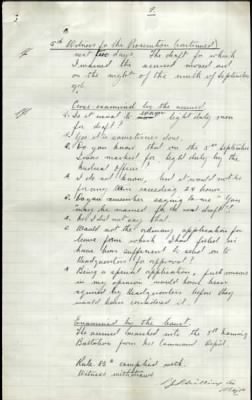 9.
5th Witness for the Prosecution (continued)
next few days. The draft for which
I warned the accused moved out
on the night of the ninth of September
1916.
Cross-examined by the accused
Q. Is it usual to warn light duty men
for draft?
A. Yes it is sometimes done.
Q. Do you know that on the 5th September
I was marked for light duty by the
medical officer?
A. I do not know, but it would not be
for any more exceeding 24 hours.
Q. Do you remember saying to me "You
may be warned for the next draft"?
A. No I did not say that.
Q. Would not the ordinary application for
leave form which I had filled in
have been sufficient to select on to
Headquarters for approval?
A. Being a special application, such men
in my opinion would have been
required by Headquarters before they
would have considered it.
Examined by the Court
The accused marched into the 5th Training
Battalion from his Command Depot.
Rule 83 complied with.
Witness withdraws